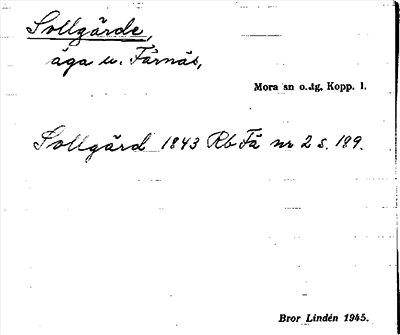 Sollgärde,
äga u. Färnäs,
Mora sn o. tg, Kopp. l.
Sollgärd 1843 Rb Fä nr 2 s. 189.
Bror Lindén 1945.